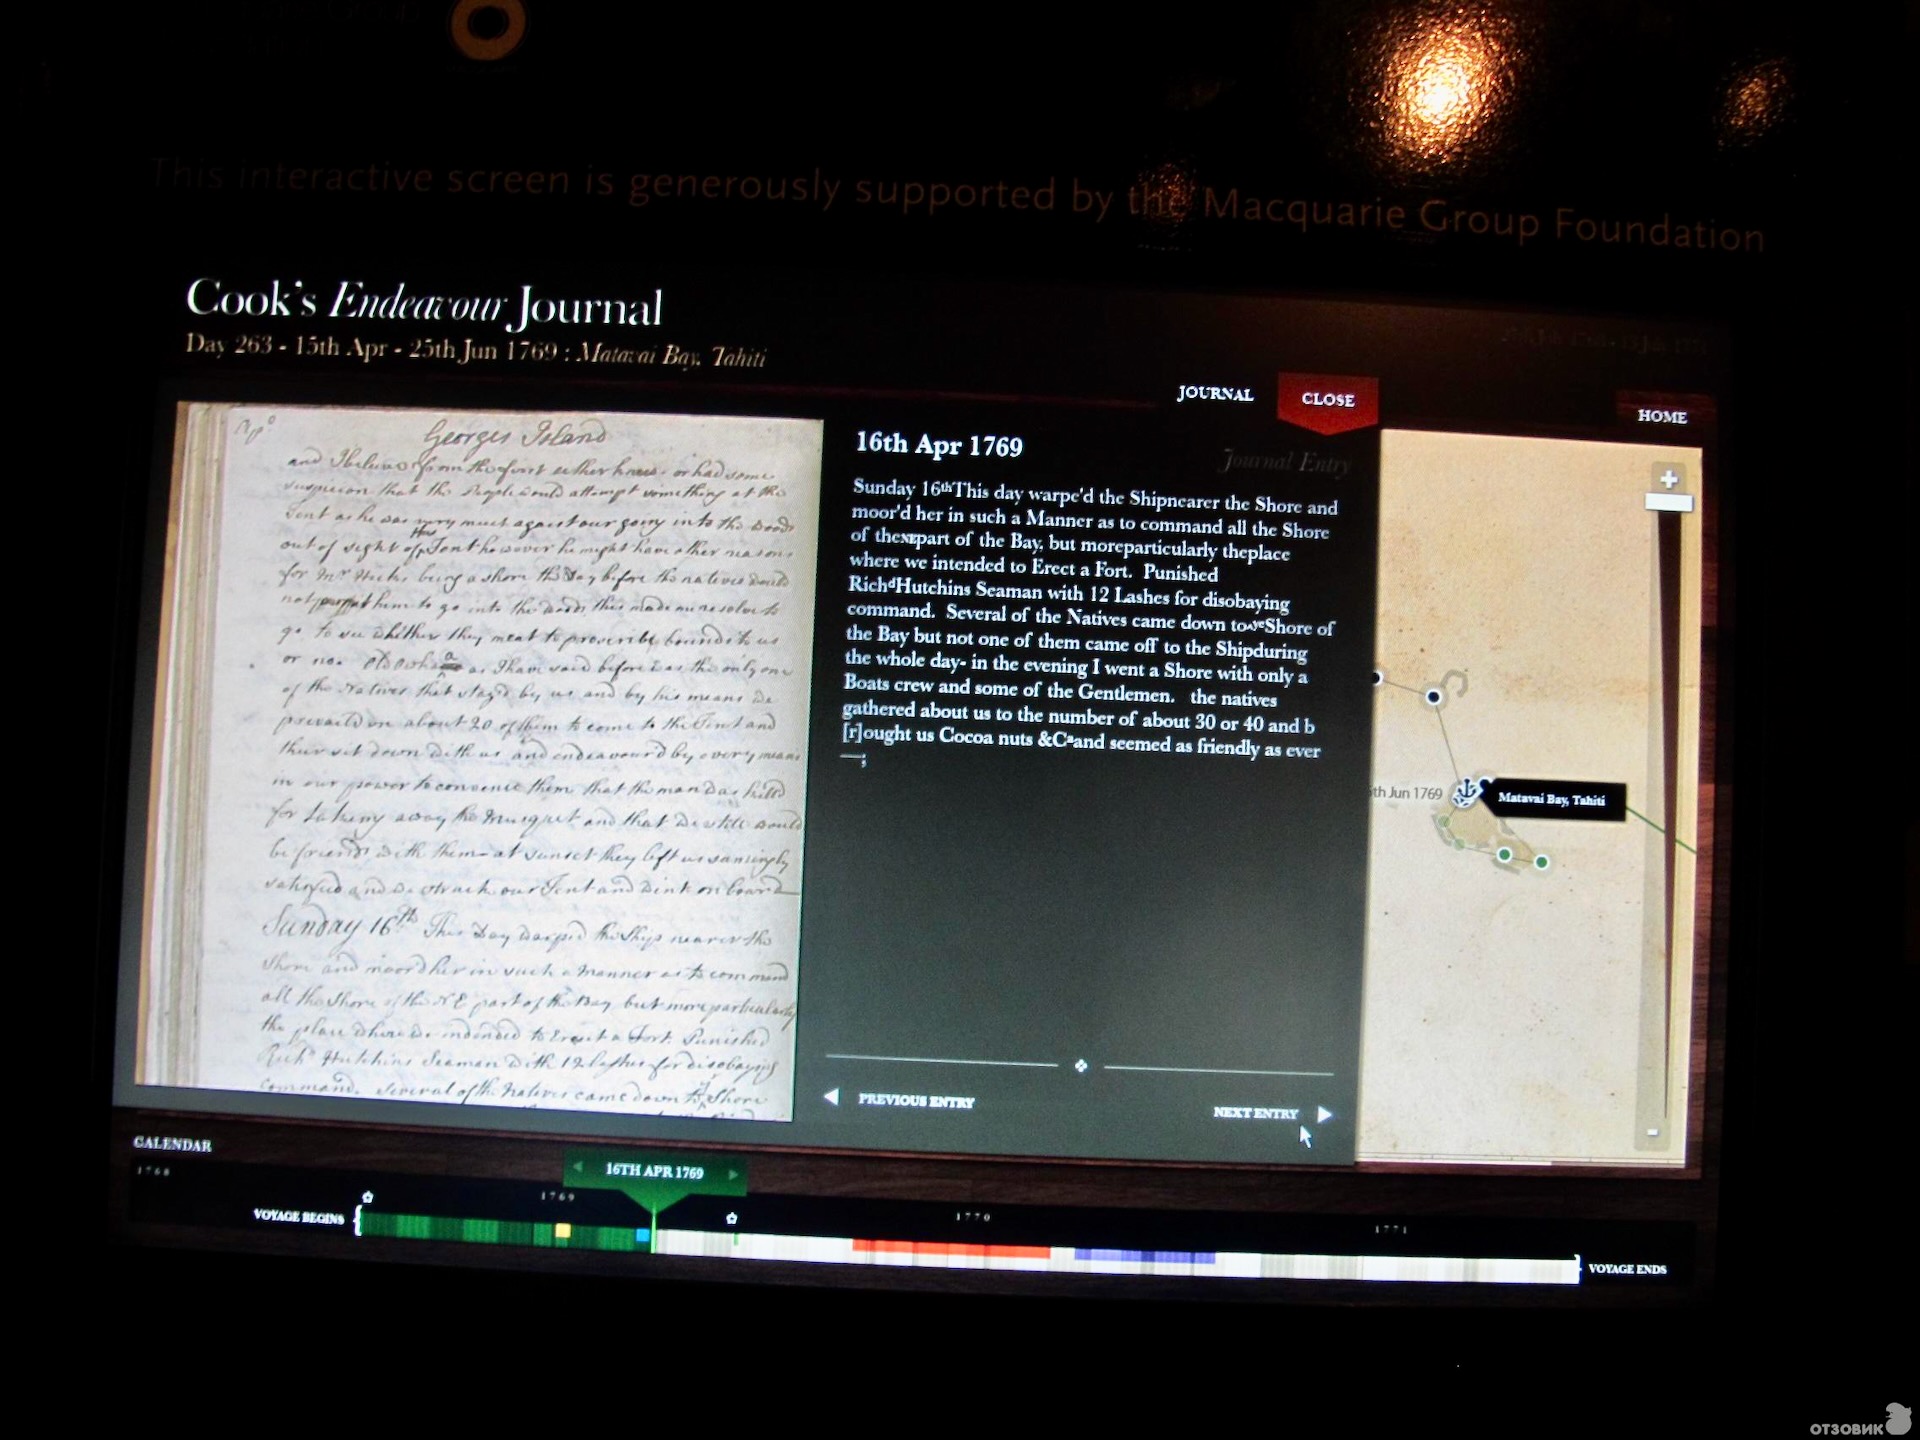 This interactive screen is generously supported by the Macquarie Group Foundation
Cook's Endeavour Journal
Day 263 - 15th Apr - 25th Jun 1769 : Matavai Bay, Tahiti
JOURNAL
CLOSE
HOME
Georges Island
and I believe from the first either knew or had some
suspicion that the People would attempt something at the
Tent as he was very much against our going into the woods
out of sight of the Tent however he might have other reasons
for Mr Hicks being a shore the Day before the natives would
not permit him to go into the woods this made me resolve to
go to see whether they meant to prescribe bounds to us
or no. old as I have said before was the only one
of the Natives that stay'd by us and by his means we
prevail'd on about 20 of them to come to the Tent and
their sit down with us and endeavour'd by every means
in our power to convence them that the man was kill'd
for taking away the Musquet and that we still would
be friends with them at sunset they left us
satisfied and we struck our Tent and went on board
Sunday 16th This Day warped the Ship nearer the
Shore and moor'd her in such a Manner as to command
all the Shore of the NE part of the Bay but more particularly
the place where we intended to Erect a Fort. Punished
Richd Hutchins Seaman with 12 lashes for disobaying
command. Several of the Natives came down to ye Shore
16th Apr 1769
Journal Entry
Sunday 16thThis day warpe'd the Shipnearer the Shore and
moor'd her in such a Manner as to command all the Shore
of theNEpart of the Bay, but moreparticularly theplace
where we intended to Erect a Fort. Punished
RichdHutchins Seaman with 12 Lashes for disobaying
command. Several of the Natives came down to^yeShore of
the Bay but not one of them came off to the Shipduring
the whole day- in the evening I went a Shore with only a
Boats crew and some of the Gentlemen. the natives
gathered about us to the number of about 30 or 40 and b
[r]ought us Cocoa nuts &Caand seemed as friendly as ever
—;
th Jun 1769
Matavai Bay, Tahiti
PREVIOUS ENTRY
NEXT ENTRY
CALENDAR
16TH APR 1769
1768
1769
1770
1771
VOYAGE BEGINS
VOYAGE ENDS
ОТЗОВИК